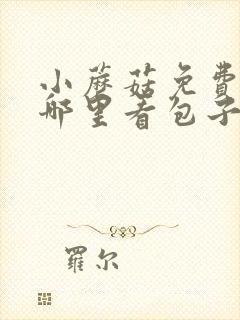 小蘑菇免費
哪里看包子
羅尔